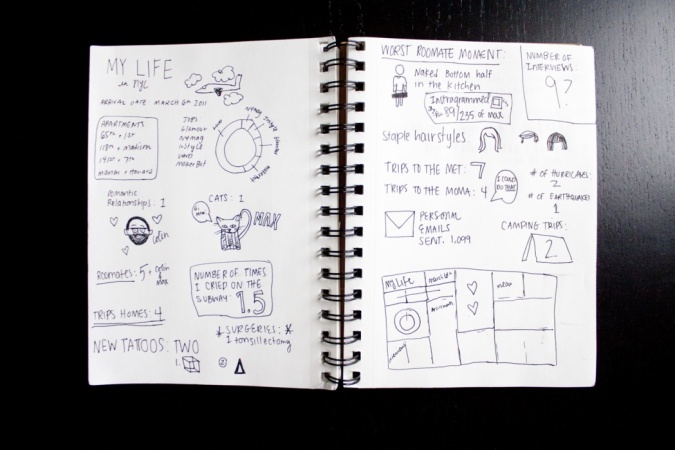 MY LIFE
in NYC
ARRIVAL DATE MARCH 6th 2011
APARTMENTS
65th + 1st
118th + madison
145st + 7th
JOBS
Glamour
Nymag
InStyle
MakerBot
Nymag
InStyle
Glamour
MakerBot
Romantic
Relationships: 1
Colin
CATS: 1
MAX
Roomates: 5 + Colin
& Max
NUMBER OF TIMES
I CRIED ON THE
SUBWAY: 1.5
TRIPS HOMES: 4
SURGERIES:
1 tonsillectomy
NEW TATTOOS: TWO
1.
2
WORST ROOMATE MOMENT:
Naked Bottom half
in the kitchen
Instagrammed
89/235 of max
NUMBER OF
INTERVIEWS:
9?
Staple hairstyles
TRIPS TO THE MET: 7
TRIPS TO THE MOMA: 4
I COULD
DO THAT
# OF HURRICANES:
2
# OF EARTHQUAKES
1
PERSONAL
EMAILS
SENT: 1,099
CAMPING TRIPS:
2
My Life